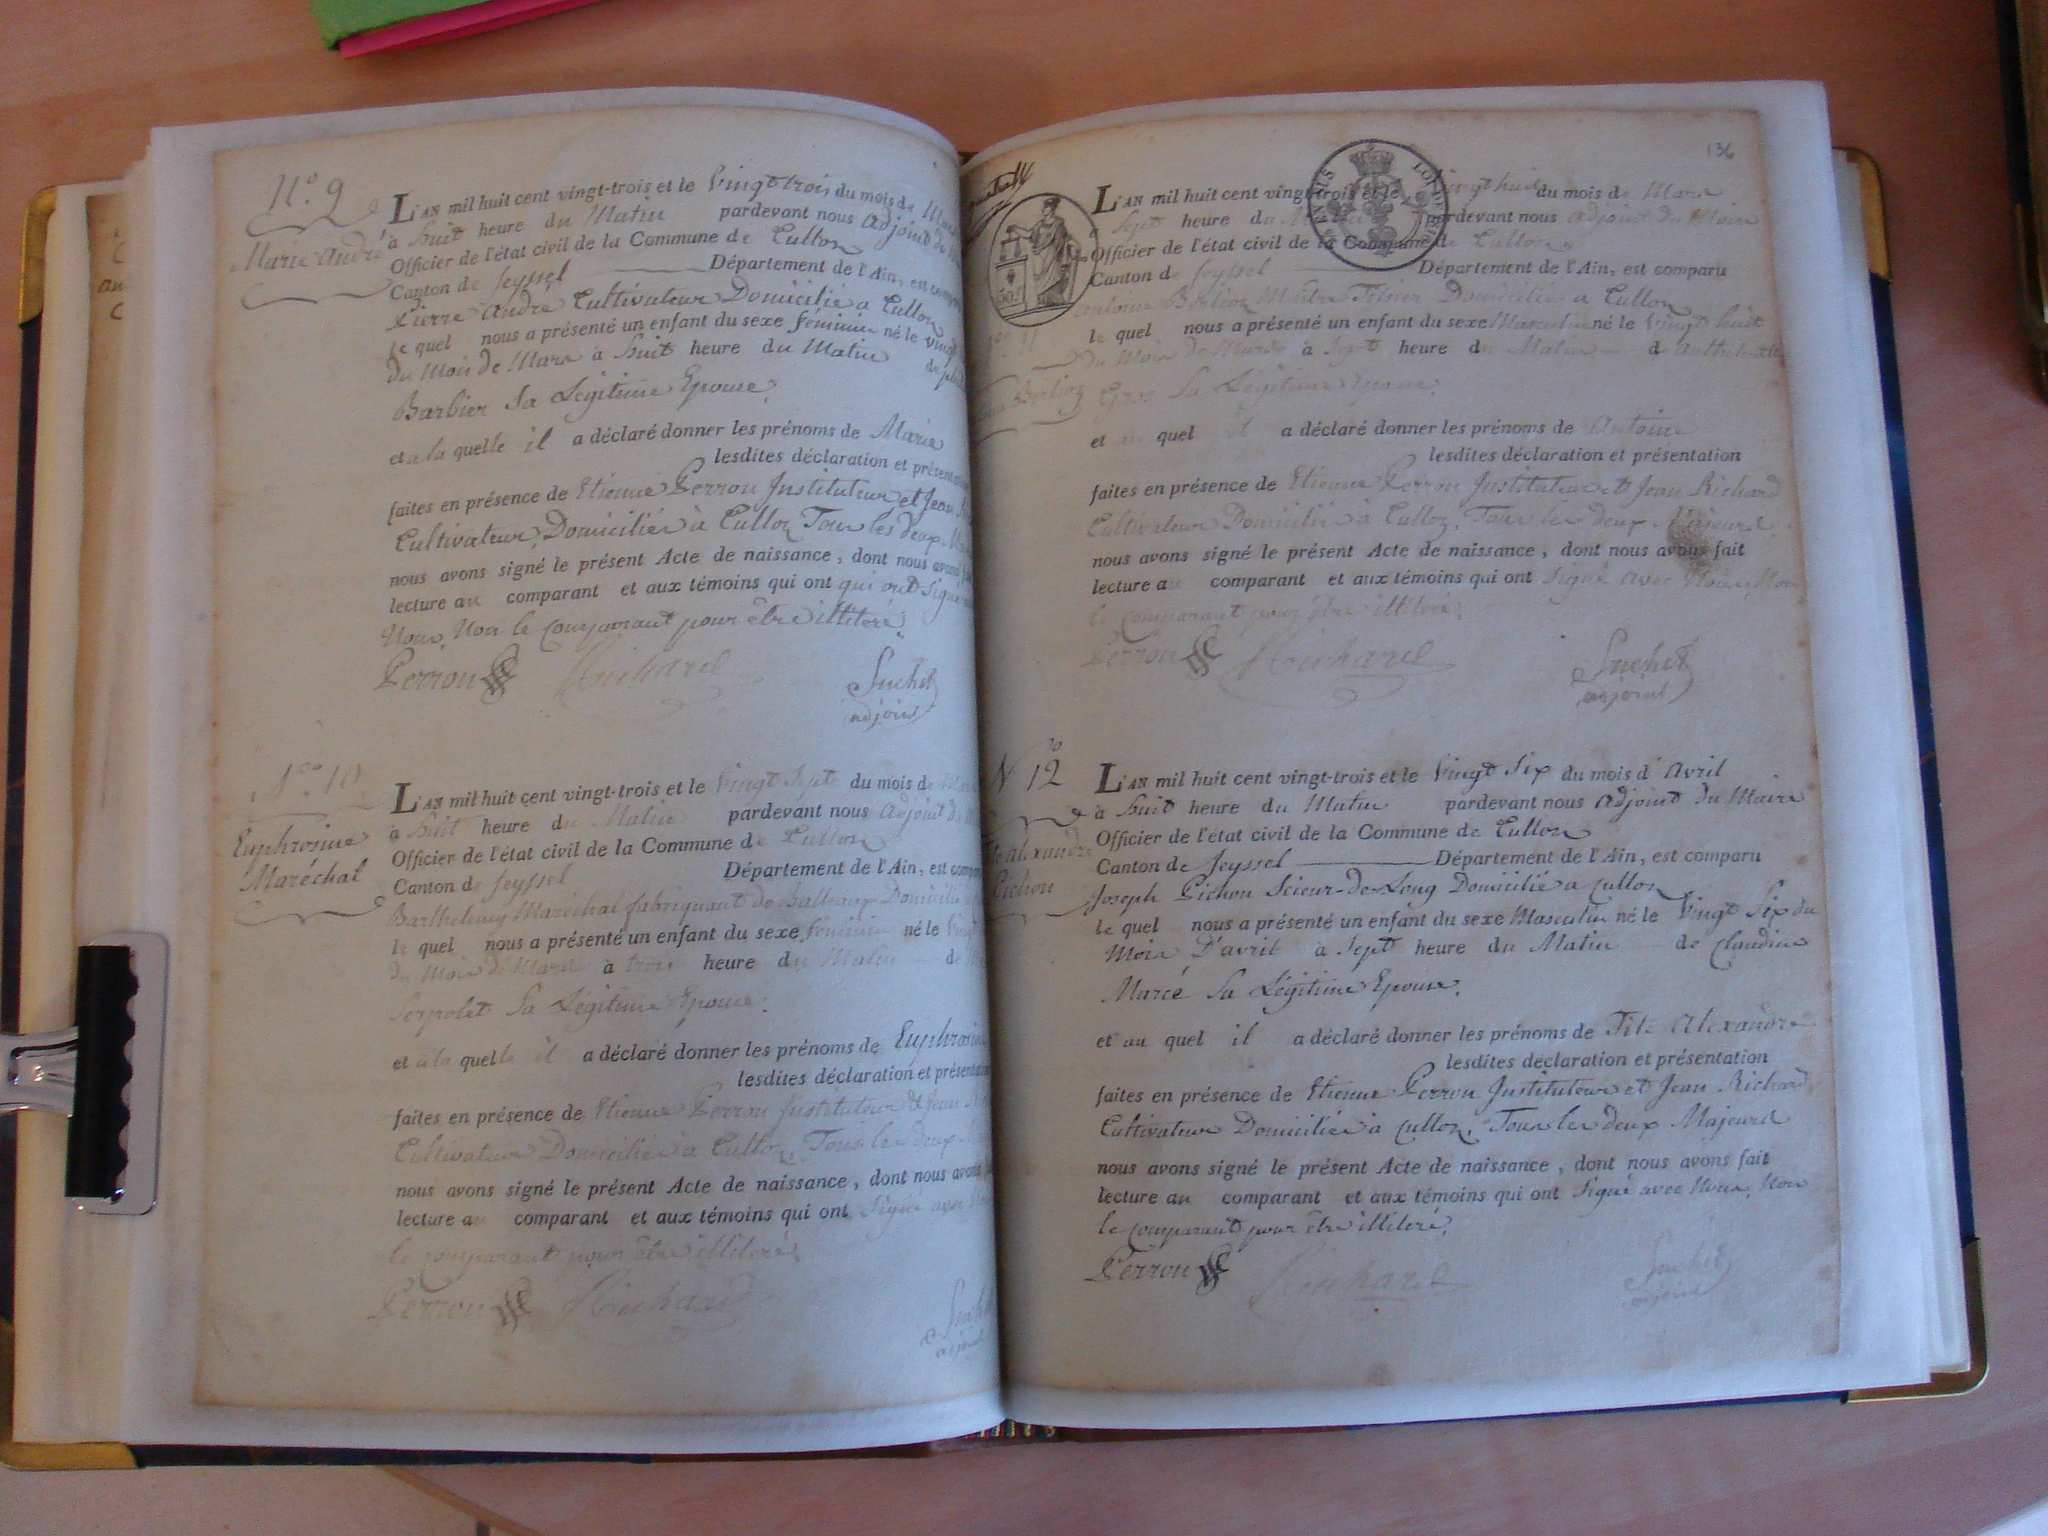 N.º 9
Marie André
L'AN mil huit cent vingt-trois et le Vingt trois du mois de Mars
à huit heure du Matin pardevant nous Adjoint du
Officier de l'état civil de la Commune de Culloz
Canton de Seyssel Département de l'Ain, est
Pierre André Cultivateur Domicilié a Culloz
le quel nous a présenté un enfant du sexe féminin né le
du Mois de Mars à huit heure du Matin
Barbier Sa Légitime Epouse.
et a la quelle il a déclaré donner les prénoms de Marie
lesdites déclaration et
faites en présence de Etienne Perron Instituteur et Jean
Cultivateur, Domiciliés à Culloz Tous les deux
nous avons signé le présent Acte de naissance, dont nous avons
lecture au comparant et aux témoins qui ont qui ont Signé
Nous, Non le Comparant pour être illitéré.
Perron Richard Suchet
adjoint
N.º 10
Euphrosine
Maréchal
L'AN mil huit cent vingt-trois et le Vingt Sept du mois de
à huit heure du Matin pardevant nous Adjoint du
Officier de l'état civil de la Commune de Culloz
Canton de Seyssel Département de l'Ain, est
Barthelemy Maréchal fabriquant de Domicilié
le quel nous a présenté un enfant du sexe féminin né le
du Mois de Mars à trois heure du Matin de
Serpolet Sa Légitime Epouse.
et à la quelle il a déclaré donner les prénoms de Euphrosine
lesdites déclaration et
faites en présence de Etienne Perron Instituteur & Jean
Cultivateur Domiciliés à Culloz, Tous les deux
nous avons signé le présent Acte de naissance, dont nous avons
lecture au comparant et aux témoins qui ont Signé avec
le comparant pour être illitéré.
Perron Richard
adjoint
136
L'AN mil huit cent vingt-trois et le vingt huit du mois de Mars
à Sept heure du pardevant nous Adjoint du Maire
Officier de l'état civil de la Commune de Culloz
Canton de Seyssel Département de l'Ain, est comparu
Antoine Berlioz Maître Domicilié a Culloz
le quel nous a présenté un enfant du sexe Masculin né le Vingt huit
du Mois de Mars à Sept heure du Matin de
Sa Légitime Epouse.
et au quel il a déclaré donner les prénoms de Antoine
lesdites déclaration et présentation
faites en présence de Etienne Perron Instituteur et Jean Richard
Cultivateur Domiciliés à Culloz, Tous les deux Majeurs
nous avons signé le présent Acte de naissance, dont nous avons fait
lecture au comparant et aux témoins qui ont Signé avec Nous, Non
le Comparant pour être illitéré.
Perron Richard Suchet
adjoint
N.º 12
Alexandre
Pichon
L'AN mil huit cent vingt-trois et le Vingt Six du mois d'Avril
à huit heure du Matin pardevant nous Adjoint du Maire
Officier de l'état civil de la Commune de Culloz
Canton de Seyssel Département de l'Ain, est comparu
Joseph Pichon Scieur-de-Long Domicilié a Culloz
le quel nous a présenté un enfant du sexe Masculin né le Vingt Six du
Mois D'avril à Sept heure du Matin de Claudine
Marcé Sa Légitime Epouse.
et au quel il a déclaré donner les prénoms de Tite Alexandre
lesdites déclaration et présentation
faites en présence de Etienne Perron Instituteur et Jean Richard
Cultivateur Domiciliés à Culloz, Tous les deux Majeurs
nous avons signé le présent Acte de naissance, dont nous avons fait
lecture au comparant et aux témoins qui ont Signé avec Nous, Non
le Comparant pour être illitéré.
Perron Richard Suchet
adjoint